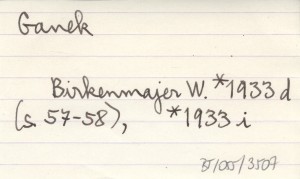 Ganek
Birkenmajer W. *1933 d
(s. 57-58), *1933 i